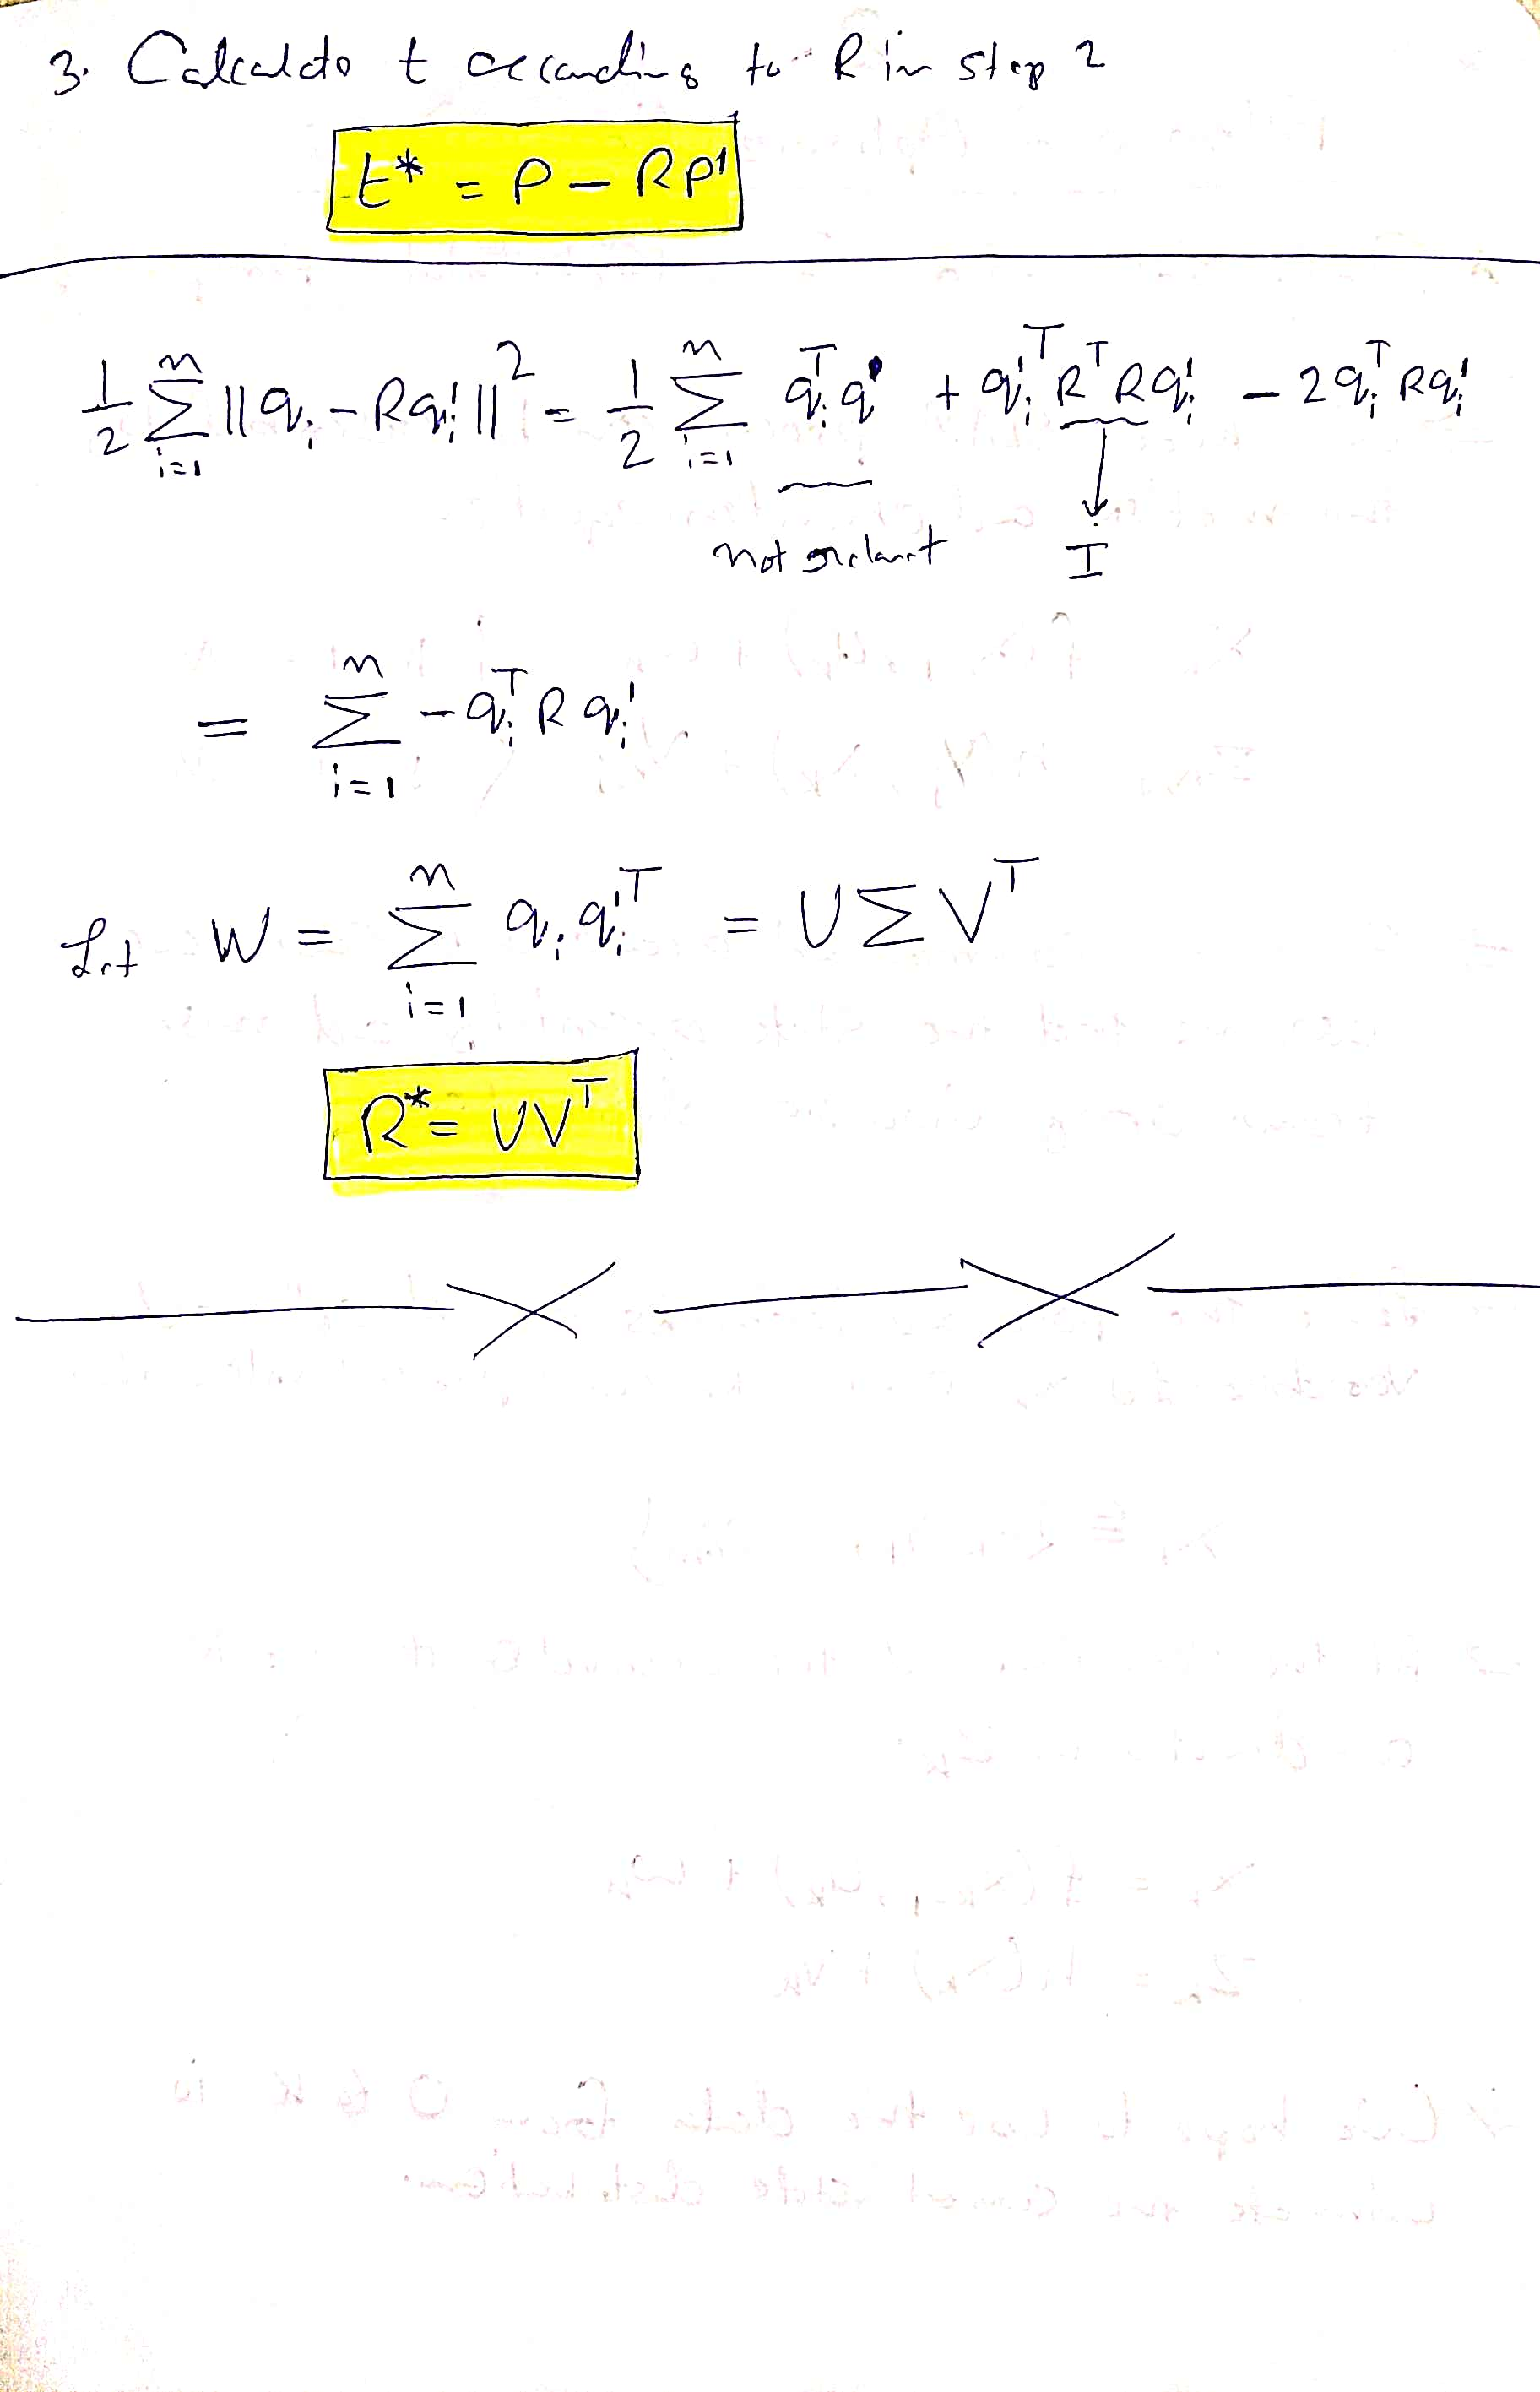 3. Calculate t according to R in step 2
t* = P - RP'
1/2 Σ_{i=1}^{n} ||q_i - Rq_i'||² = 1/2 Σ_{i=1}^{n} q_i^T q + q_i'^T R^T R q_i' - 2q_i^T R q_i'
not relevant I
= Σ_{i=1}^{n} -q_i^T R q_i'
Let W = Σ_{i=1}^{n} q_i q_i'^T = U Σ V^T
R* = UV^T